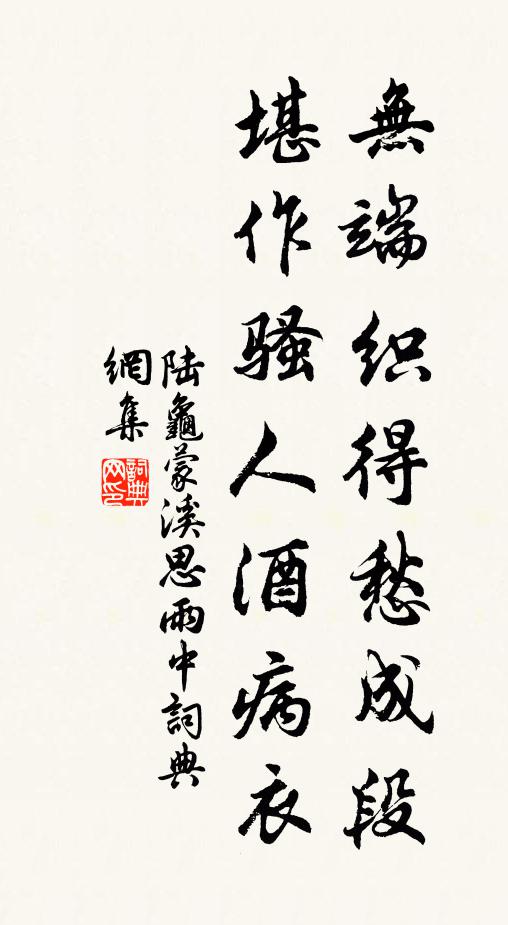 無端织得愁成段
堪作骚人酒病衣
陆龜蒙溪思雨中詞典
網集
詞典
网印